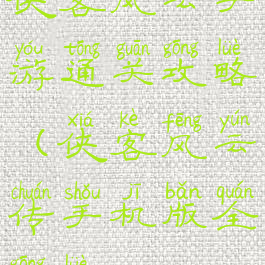 侠客风云手
yóu tōng guān gōng lüè
游通关攻略
xiá kè fēng yún
（侠客风云
chuán shǒu jī bǎn quán
传手机版全
gōng lüè